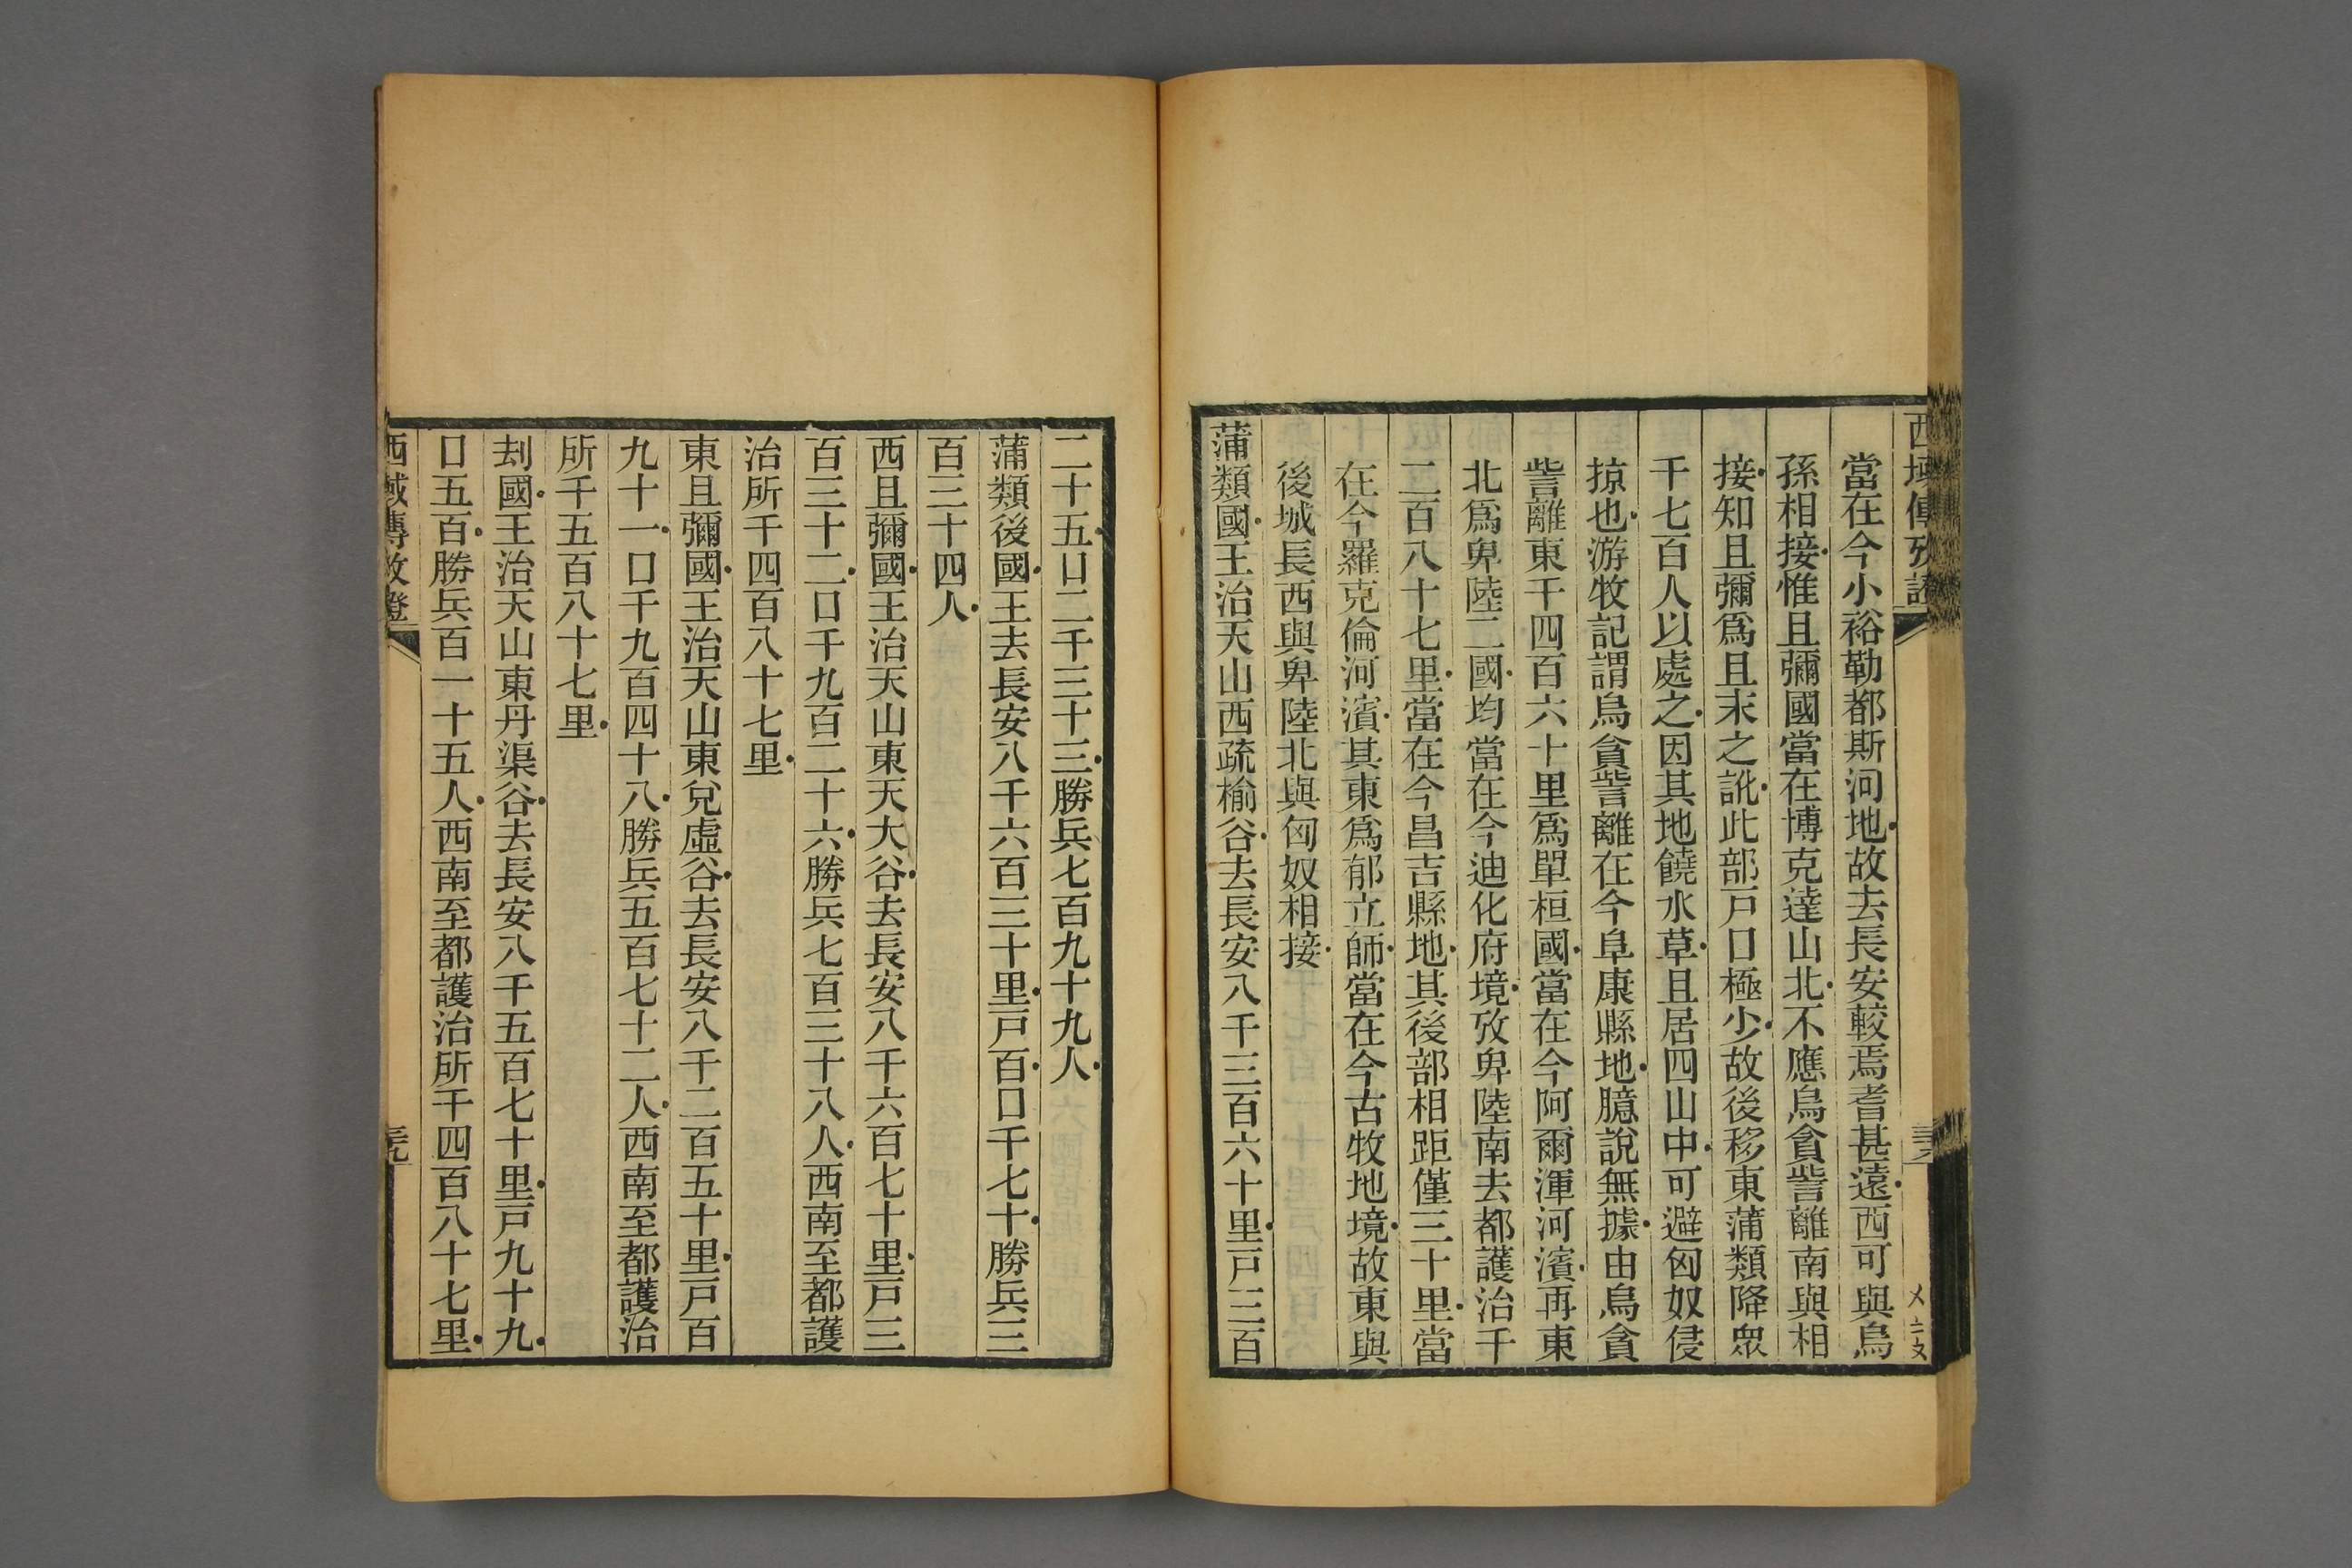 西域傳攷證
當在今小裕勒都斯河地故去長安較焉耆甚遠西可與烏
孫相接惟且彌國當在博克達山北不應烏貪訾離南與相
接知且彌爲且末之訛此部戸口極少故後移東蒲類降衆
千七百人以處之因其地饒水草且居四山中可避匈奴侵
掠也游牧記謂烏貪訾離在今阜康縣地臆說無據由烏貪
訾離東千四百六十里爲單桓國當在今阿爾渾河濱再東
北爲卑陸二國均當在今迪化府境攷卑陸南去都護治千
二百八十七里當在今昌吉縣地其後部相距僅三十里當
在今羅克倫河濱其東爲郁立師當在今古牧地境故東與
後城長西與卑陸北與匈奴相接
蒲類國王治天山西疏榆谷去長安八千三百六十里戸三百
二十五口二千三十三勝兵七百九十九人
蒲類後國王去長安八千六百三十里戸百口千七十勝兵三
百三十四人
西且彌國王治天山東天大谷去長安八千六百七十里戸三
百三十二口千九百二十六勝兵七百三十八人西南至都護
治所千四百八十七里
東且彌國王治天山東兌虛谷去長安八千二百五十里戸百
九十一口千九百四十八勝兵五百七十二人西南至都護治
所千五百八十七里
刦國王治天山東丹渠谷去長安八千五百七十里戸九十九
口五百勝兵百一十五人西南至都護治所千四百八十七里
西域傳攷證
三九